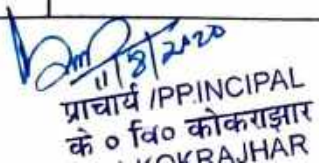 11/8/2020
प्राचार्य /PPINCIPAL
के ० वि० कोकराझार
KOKRAJHAR